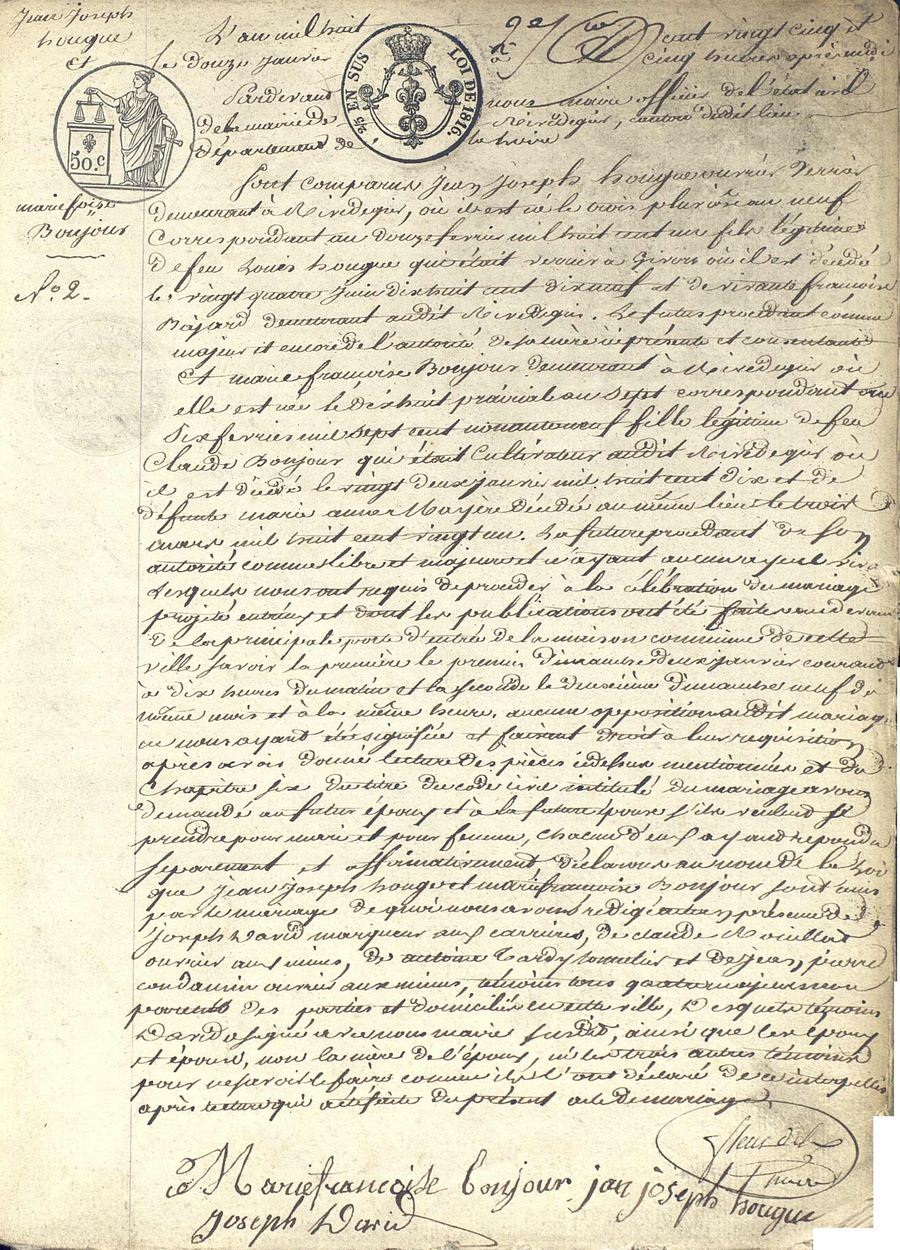 Jean Joseph
hougue
Et
marie foise
Bonjour
N.º 2.
50.c
2/5 EN SUS
LOI DE 1816.
L'an mil huit cent vingt cinq et
le douze Janvier cinq heures après midi
Pardevant nous maire officier de l'état civil
de la mairie de Rivedegier, canton dudit lieu
département de la Loire
Sont comparus Jean Joseph hougue ouvrier Verrier
demeurant à Rivedegier, où il est né le trois pluviôse an neuf
Correspondant au douze fevrier mil huit cent un fils légitime
de feu Louis hougue qui était verrier à Givors où il est décédé
le vingt quatre Juin dix huit cent dix neuf et de vivante francoise
Bajard demeurant audit Rivedegier. Le futur procédant comme
majeur et encore de l'autorité de sa mère ici présente et consentante
Et marie francoise Bonjour demeurant à Rivedegier où
elle est née le dix huit prairial an Sept correspondant au
Six fevrier mil sept cent nonante neuf fille légitime de feu
Claude Bonjour qui était Cultivateur audit Rivedegier où
il est décédé le vingt deux janvier mil huit cent dix et de
défunte marie anne Mayère décédée au même lieu le trois
mars mil huit cent vingt un. La future procédant de son
autorité comme libre et majeure et n'ayant aucun ayeul vivant
Lesquels nous ont requis de procéder à la célébration du mariage
projeté entr'eux et dont les publications ont été faites au devant
de la principale porte d'entrée de la maison commune de cette
ville savoir la première le premier dimanche deux janvier courant
à dix heures du matin et la seconde le deuxième dimanche neuf du
même mois et à la même heure. aucune opposition audit mariage
ne nous ayant été signifiée et faisant droit à leur requisition
après avoir donné lecture des pièces cidessus mentionnées et du
Chapitre six du titre du code civil intitulé du mariage avons
demandé au futur époux et à la future épouse s'ils veulent se
prendre pour mari et pour femme, chacun d'eux ayant repondu
separement et affirmativement déclarons au nom de la Loi
que Jean Joseph hougue et marie francoise Bonjour sont unis
par le mariage de quoi nous avons rédigé acte en présence de
Joseph David marqueur aux carrières, de claude Rouillat
ouvrier aux mines, de antoine Tardy tonnelier et de Jean pierre
condamin ouvrier aux mines, témoins tous quatre majeurs non
parents des parties et domiciliés en cette ville, Desquels témoins
David a signé avec nous maire susdit, ainsi que les époux
et épouse, non la mère de l'époux, ni les trois autres témoins
pour ne savoir le faire comme ils l'ont déclaré de ce interpellés
après lecture qui a été faite du présent acte de mariage.
Marie francoise bonjour jan joseph hougue
Joseph David